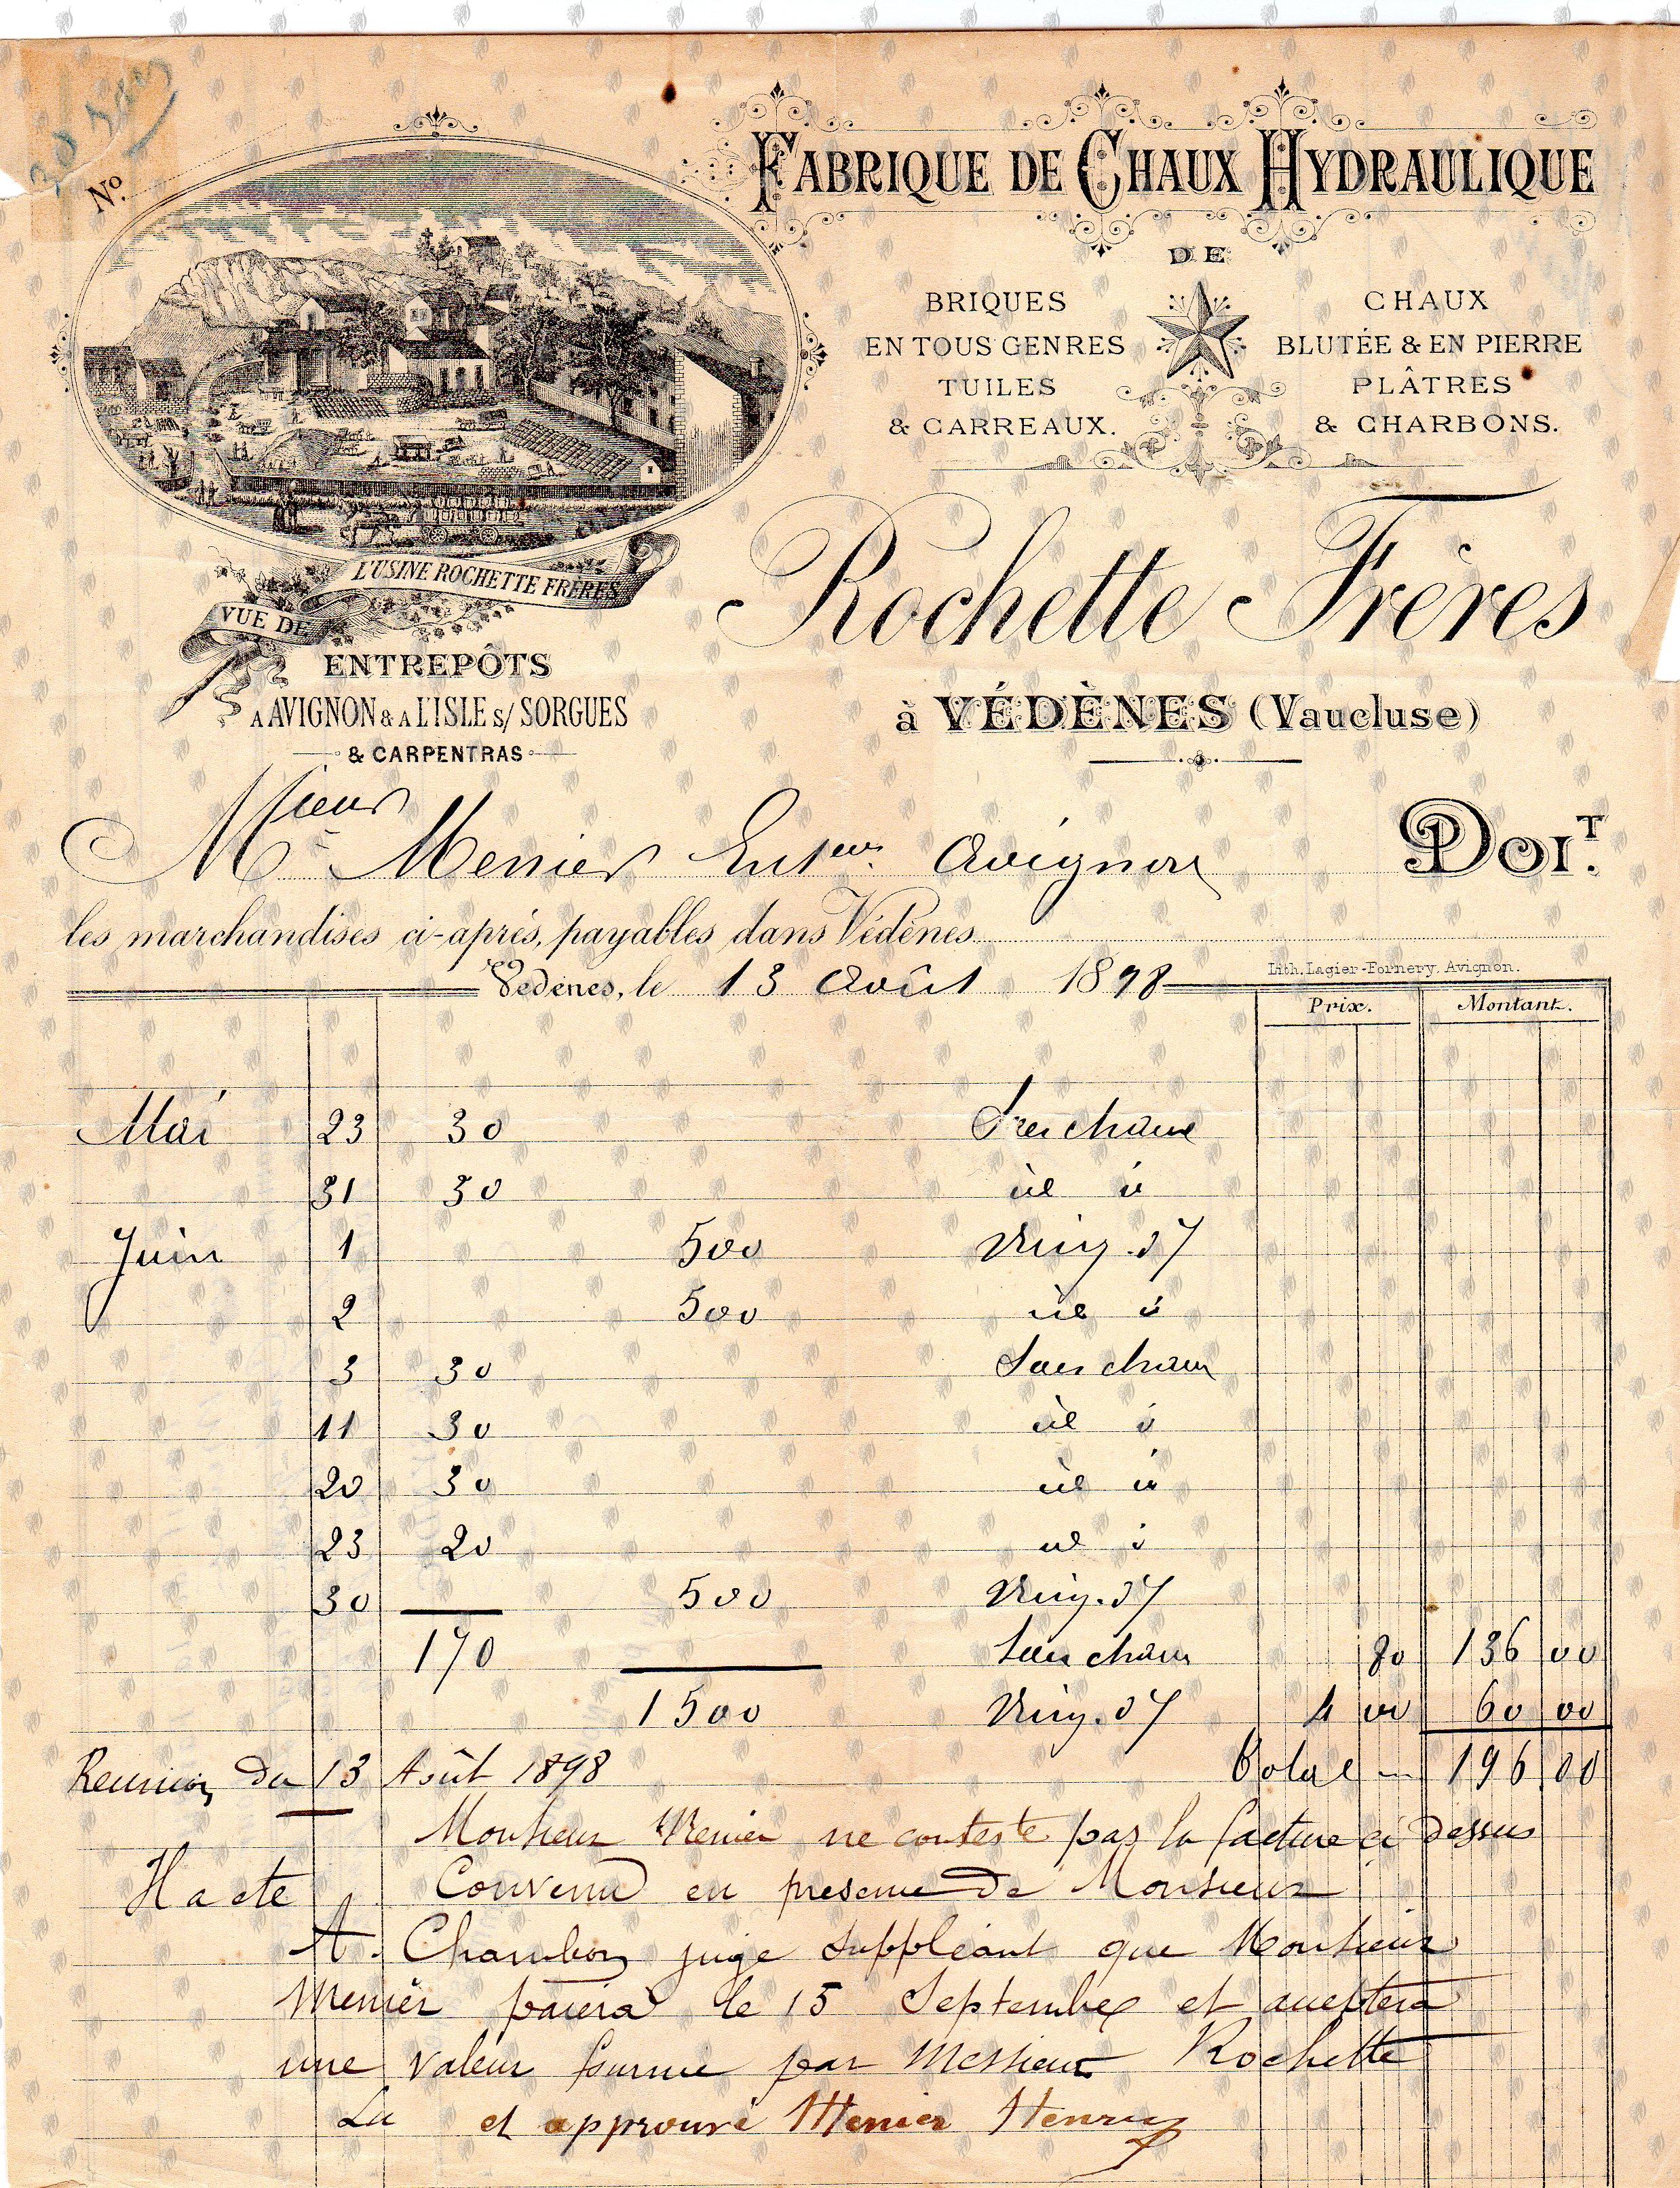 Nº
FABRIQUE DE CHAUX HYDRAULIQUE
DE
BRIQUES
EN TOUS GENRES
TUILES
& CARREAUX.
CHAUX
BLUTÉE & EN PIERRE
PLÂTRES
& CHARBONS.
VUE DE L'USINE ROCHETTE FRÈRES
Rochette Frères
à VÉDÈNES (Vaucluse)
ENTREPÔTS
A AVIGNON & A L'ISLE s/ SORGUES
& CARPENTRAS
Msieur Menier Entreur Avignon DOIT.
les marchandises ci-après, payables dans Védènes
Vedènes, le 13 Août 1898
Lith. Lagier-Fornery. Avignon.
Prix. Montant.
Mai 23 30 chaux
31 30 id
Juin 1 500
2 500 id
3 30 Sacs chaux
11 30 id
20 30 id
23 20 id
30 500
170 Sacs chaux 80 136 00
1500 4 00 60 00
Reunion du 13 Août 1898 Total 196 00
Monsieur Menier ne conteste pas la facture ci dessus
Il a ete Convenu en presence de Monsieur
A. Chambon juge suppléant que Monsieur
Menier paiera le 15 Septembre et acceptera
une valeur fournie par Messieurs Rochette
Lu et approuvé Menier Henry